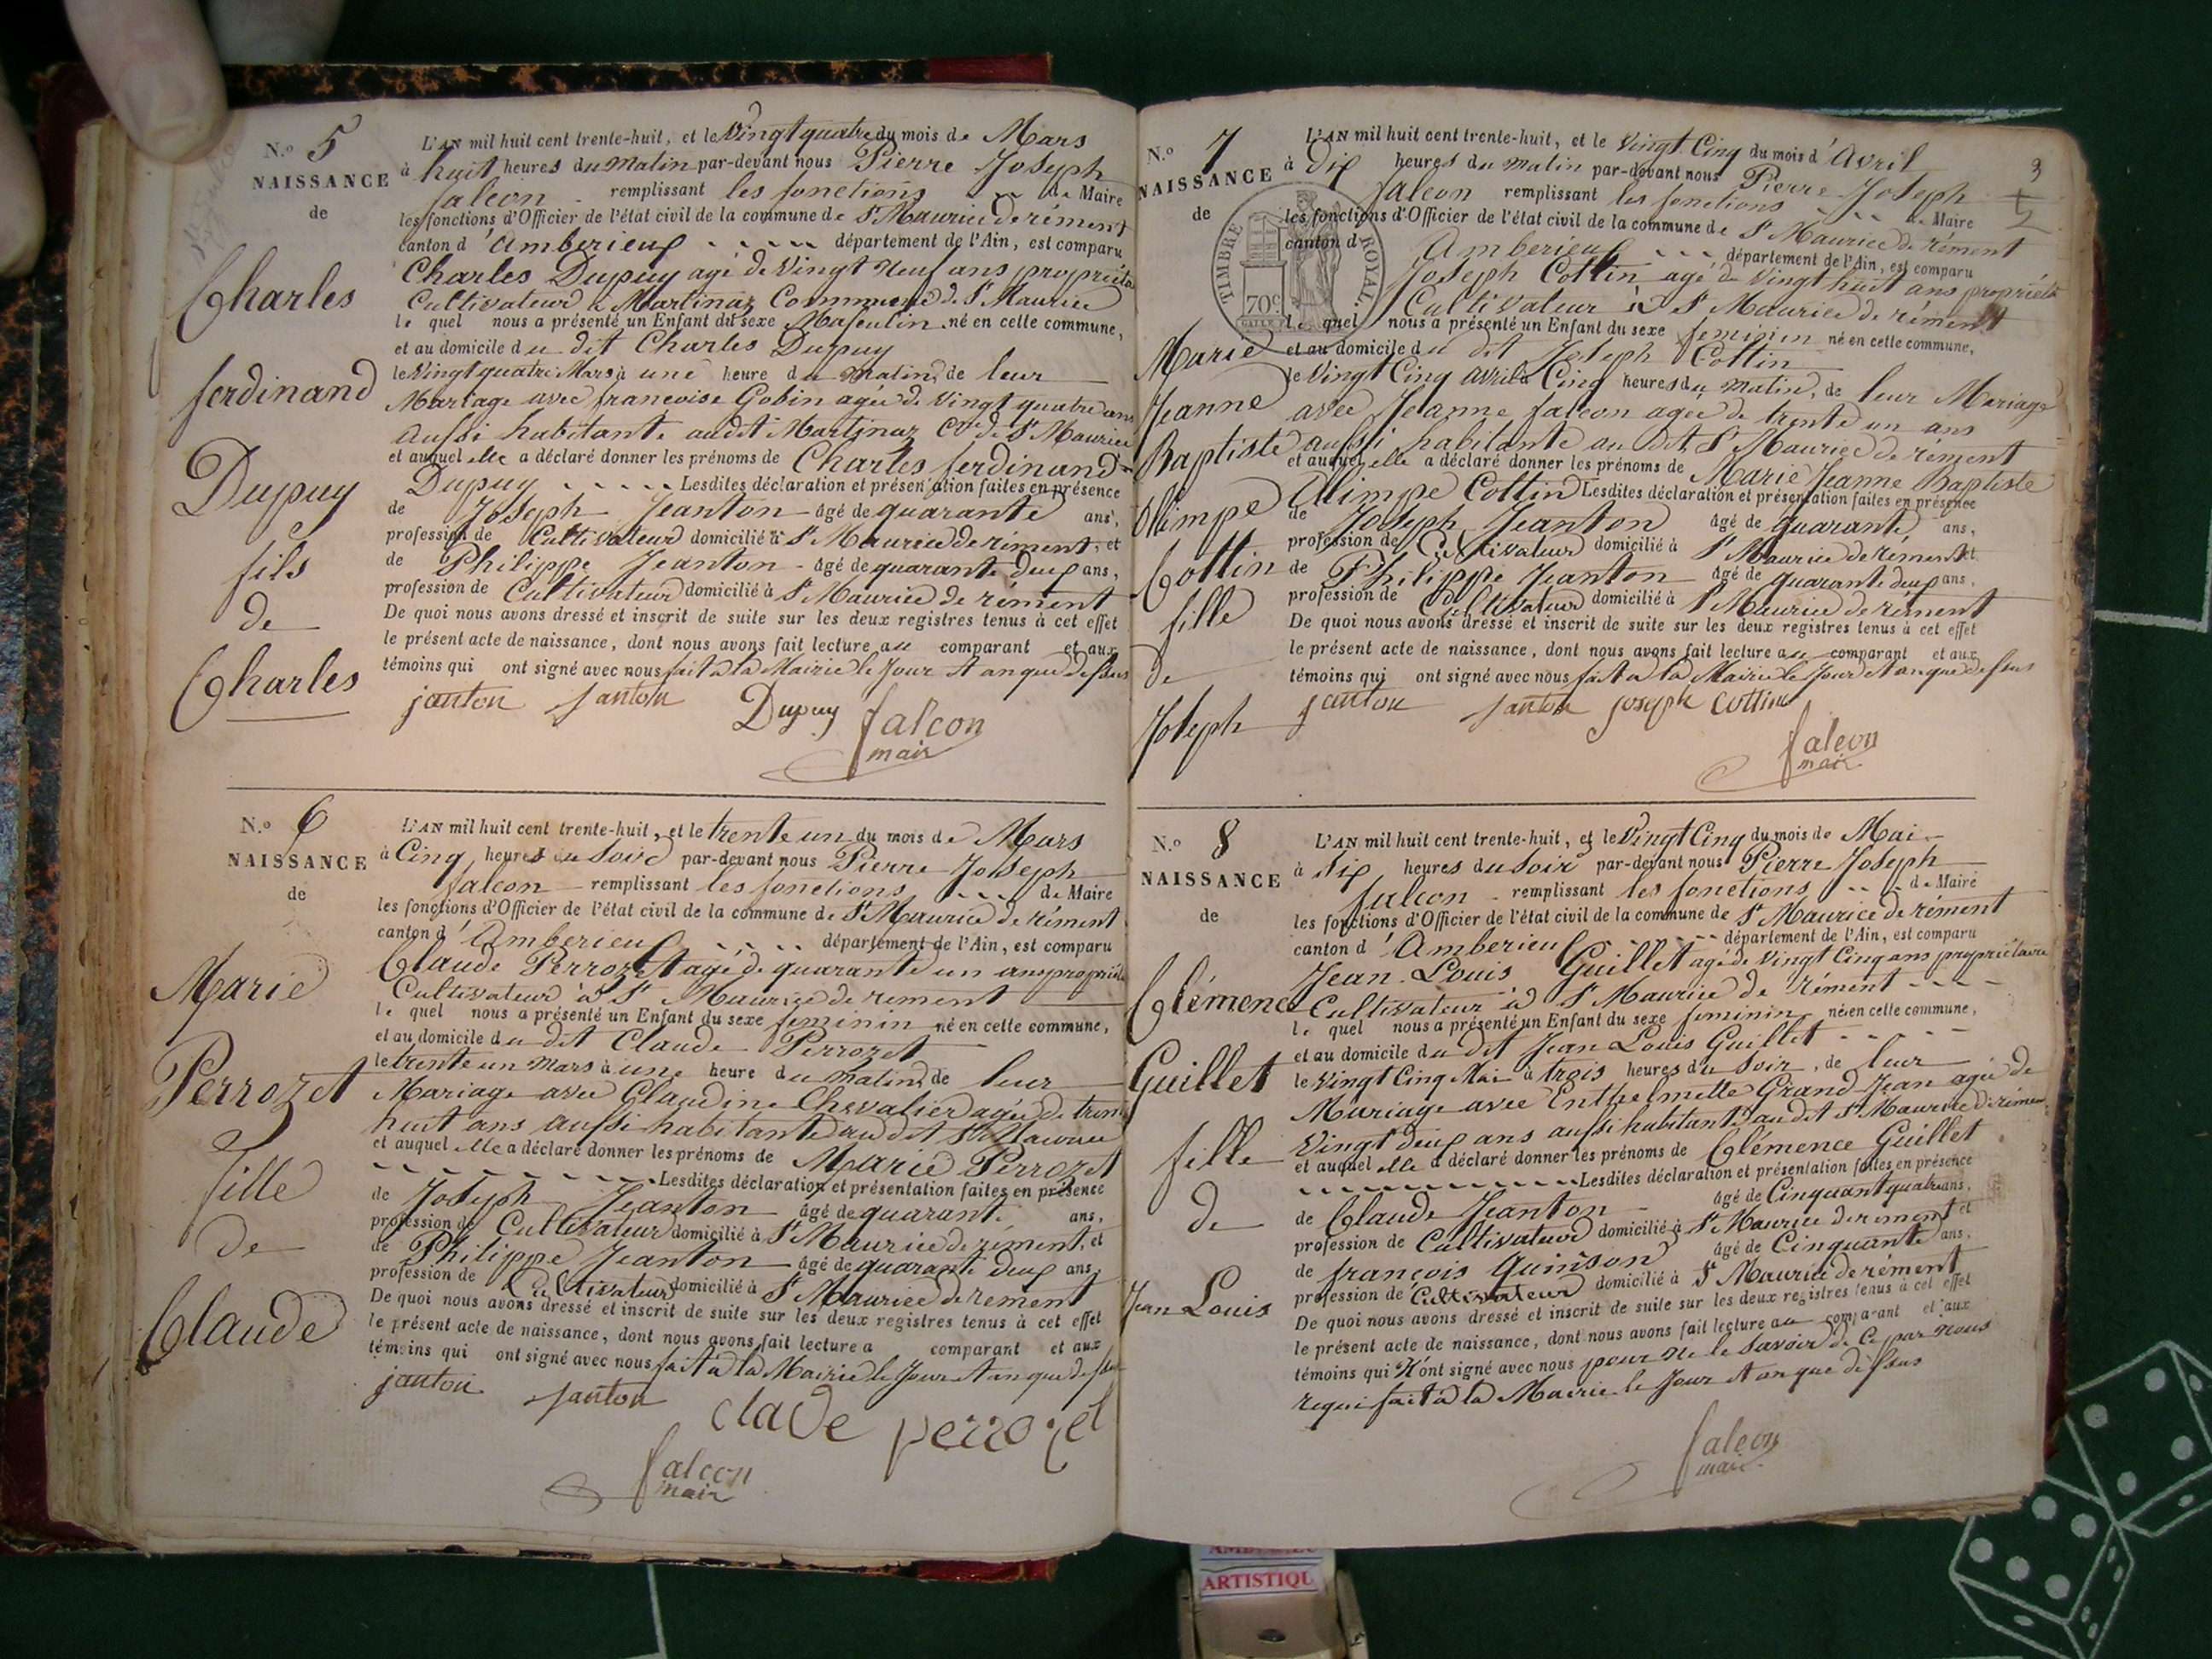 N.o 5
NAISSANCE
de
Charles
ferdinand
Dupuy
fils
de
Charles
L'AN mil huit cent trente-huit, et le Vingt quatre du mois de Mars
à huit heures du matin par-devant nous Pierre Joseph
falcon - remplissant les fonctions de Maire
les fonctions d'Officier de l'état civil de la commune de St Maurice de rément
canton d'Amberieux - - - - - département de l'Ain, est comparu
Charles Dupuy agé de Vingt neuf ans propriéta
Cultivateur à Martinaz Commune de St Maurice
le quel nous a présenté un Enfant du sexe Masculin né en cette commune,
et au domicile du dit Charles Dupuy
le Vingt quatre Mars à une heure du matin, de leur
Mariage avec francoise Gobin agée de Vingt quatre ans
aussi habitante audit Martinaz Cne de St Maurice
et auquel elle a déclaré donner les prénoms de Charles ferdinand
Dupuy - - - - - Lesdites déclaration et présentation faites en présence
de Joseph Jeanton âgé de quarante ans,
profession de Cultivateur domicilié à St Maurice de rément, et
de Philippe Jeanton - âgé de quarante deux ans,
profession de Cultivateur domicilié à St Maurice de rément
De quoi nous avons dressé et inscrit de suite sur les deux registres tenus à cet effet
le présent acte de naissance, dont nous avons fait lecture au comparant et aux
témoins qui ont signé avec nous fait à la Mairie le Jour et an que dessus
janton janton Dupuy falcon
mair
N.o 6
NAISSANCE
de
Marie
Perrozet
fille
de
Claude
L'AN mil huit cent trente-huit, et le trente un du mois de Mars
à Cinq heures du Soir par-devant nous Pierre Joseph
falcon - remplissant les fonctions - - - de Maire
les fonctions d'Officier de l'état civil de la commune de St Maurice de rément
canton d'Amberieux - - - - département de l'Ain, est comparu
Claude Perrozet agé de quarante un ans propriéta
Cultivateur à St Maurice de rement
le quel nous a présenté un Enfant du sexe feminin né en cette commune,
et au domicile du dit Claude Perrozet
le trente un Mars à une heure du matin, de leur
Mariage avec Claudine Chevalier agée de trente
huit ans aussi habitante au dit St Maurice
et auquel elle a déclaré donner les prénoms de Marie Perrozet
- - - - - - - - Lesdites déclaration et présentation faites en présence
de Joseph Jeanton âgé de quarante ans,
profession de Cultivateur domicilié à St Maurice de rément, et
de Philippe Jeanton âgé de quarante deux ans,
profession de Cultivateur domicilié à St Maurice de rement
De quoi nous avons dressé et inscrit de suite sur les deux registres tenus à cet effet
le présent acte de naissance, dont nous avons fait lecture a comparant et aux
témoins qui ont signé avec nous fait à la Mairie le Jour et an que dessus
janton janton clade perrozet
falcon
mair
3
N.o 7
NAISSANCE
de
TIMBRE ROYAL
70c
Marie
Jeanne
Baptiste
Olimpe
Cottin
fille
de
Joseph
L'AN mil huit cent trente-huit, et le Vingt Cinq du mois d'Avril
à dix heures du matin par-devant nous Pierre Joseph
falcon remplissant les fonctions de Maire
les fonctions d'Officier de l'état civil de la commune de St Maurice de rément
canton d'Amberieux - - - département de l'Ain, est comparu
Joseph Cottin agé de Vingt huit ans propriét
Cultivateur à St Maurice de rément
le quel nous a présenté un Enfant du sexe feminin né en cette commune,
et au domicile du dit Joseph Cottin
le Vingt Cinq avril à Cinq heures du matin, de leur Mariage
avec Jeanne falcon agée de trente un ans
aussi habitante au dit St Maurice de rément
et auquel elle a déclaré donner les prénoms de Marie Jeanne Baptiste
Olimpe Cottin Lesdites déclaration et présentation faites en présence
de Joseph Jeanton âgé de quarante ans,
profession de Cultivateur domicilié à St Maurice de rément et
de Philippe Jeanton âgé de quarante deux ans,
profession de Cultivateur domicilié à St Maurice de rément
De quoi nous avons dressé et inscrit de suite sur les deux registres tenus à cet effet
le présent acte de naissance, dont nous avons fait lecture au comparant et aux
témoins qui ont signé avec nous fait à la Mairie le Jour et an que dessus
janton janton joseph cottin
falcon
mair
N.o 8
NAISSANCE
de
Clémence
Guillet
fille
de
Jean Louis
L'AN mil huit cent trente-huit, et le Vingt Cinq du mois de Mai
à six heures du Soir par-devant nous Pierre Joseph
falcon - remplissant les fonctions - - - de Maire
les fonctions d'Officier de l'état civil de la commune de St Maurice de rément
canton d'Amberieux - - - - - département de l'Ain, est comparu
Jean Louis Guillet agé de Vingt Cinq ans propriétaire
Cultivateur à St Maurice de rément - - - -
le quel nous a présenté un Enfant du sexe feminin né en cette commune,
et au domicile du dit Jean Louis Guillet - - - -
le Vingt Cinq Mai à trois heures du Soir, de leur
Mariage avec Grand Jean agée de
Vingt deux ans aussi habitante au dit St Maurice de rémen
et auquel elle a déclaré donner les prénoms de Clémence Guillet
- - - - - - - - - - - - Lesdites déclaration et présentation faites en présence
de Claude Jeanton âgé de Cinquant quatre ans,
profession de Cultivateur domicilié à St Maurice de rément et
de françois Quinson âgé de Cinquante ans,
profession de Cultivateur domicilié à St Maurice de rément
De quoi nous avons dressé et inscrit de suite sur les deux registres tenus à cet effet
le présent acte de naissance, dont nous avons fait lecture au comparant et aux
témoins qui N'ont signé avec nous pour ne le Savoir de Ce par nous
requi fait à la Mairie le Jour et an que dessus
falcon
mair
ARTISTIQU